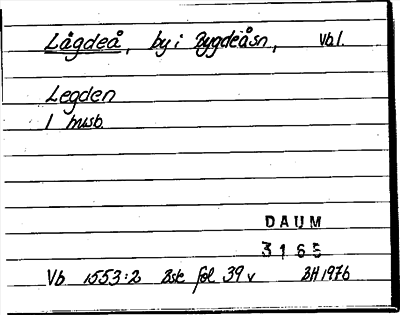 Lågdeå, by i Bygdeåsn, Vbl.
Legden
1 husb.
DAUM
3165
Vb 1553:2 Bsk fol 39 v BH 1976